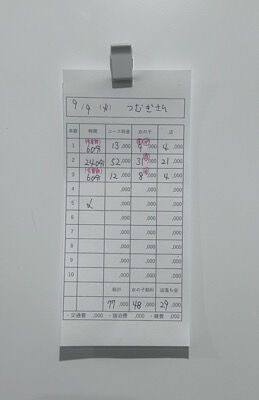 9/9 (火) つむぎさん
本数 時間 コース料金 女の子 店
1 60分 13,000 9,000 4,000
2 240分 52,000 31,000 21,000
3 60分 12,000 8,000 4,000
4 ,000 ,000 ,000
5 〆 ,000 ,000 ,000
6 ,000 ,000 ,000
7 ,000 ,000 ,000
8 ,000 ,000 ,000
9 ,000 ,000 ,000
10 ,000 ,000 ,000
総計 女の子給料 店落ち金
77,000 48,000 29,000
・交通費 ,000 ・宿泊費 ,000 ・雑費 ,000